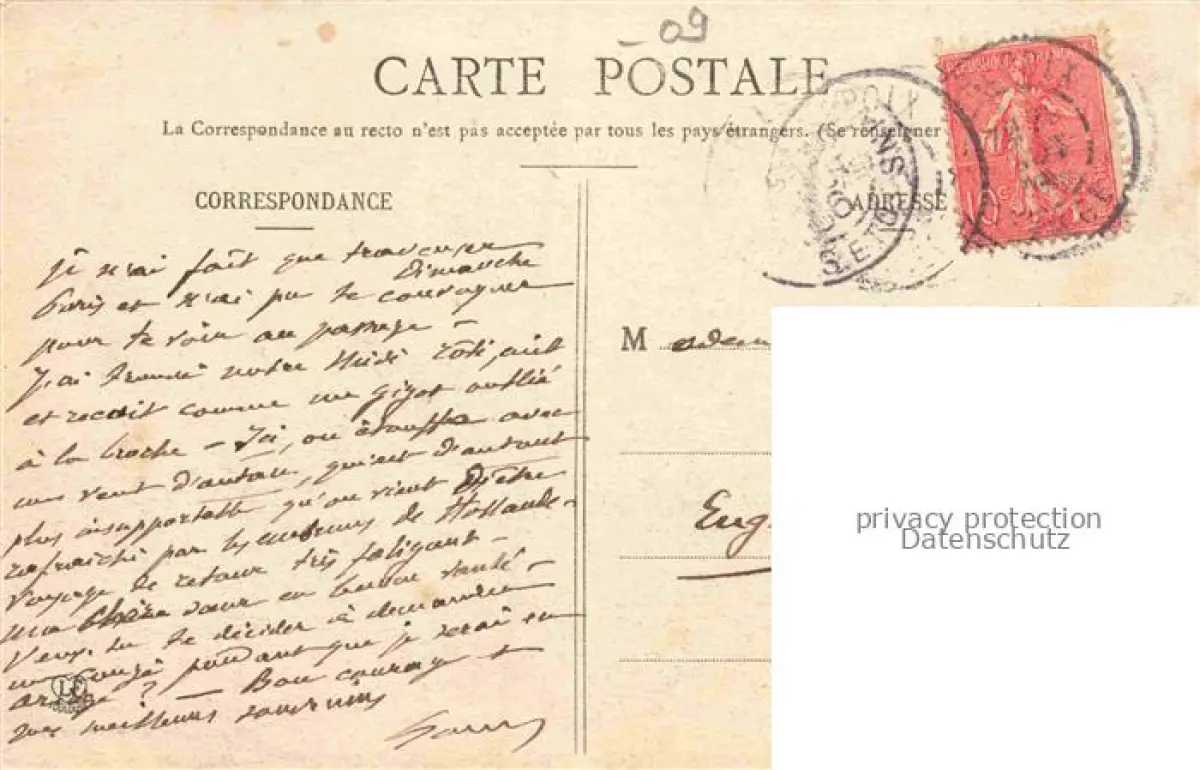 09
CARTE POSTALE
La Correspondance au recto n'est pas acceptée par tous les pays étrangers. (Se renseigner
CORRESPONDANCE
ADRESSE
Je n'ai fait que traverser
Paris Dimanche et n'ai pu te convoquer
pour te voir au passage –
J'ai trouvé notre Midi rôti, cuit
et recuit comme un gigot oublié
à la broche – Ici, on étouffe avec
un vent d'autan, qui est d'autant
plus insupportable qu'on vient d'être
rafraichi par les brumes de Hollande –
Voyage de retour très fatigant –
ma chère sœur en bonne santé –
Veux-tu te décider à demander
un congé pendant que je serai en
ariège ? – Bon courage et
mes meilleurs souvenirs
M adem
Eug
LF
FOIX
10
privacy protection
Datenschutz